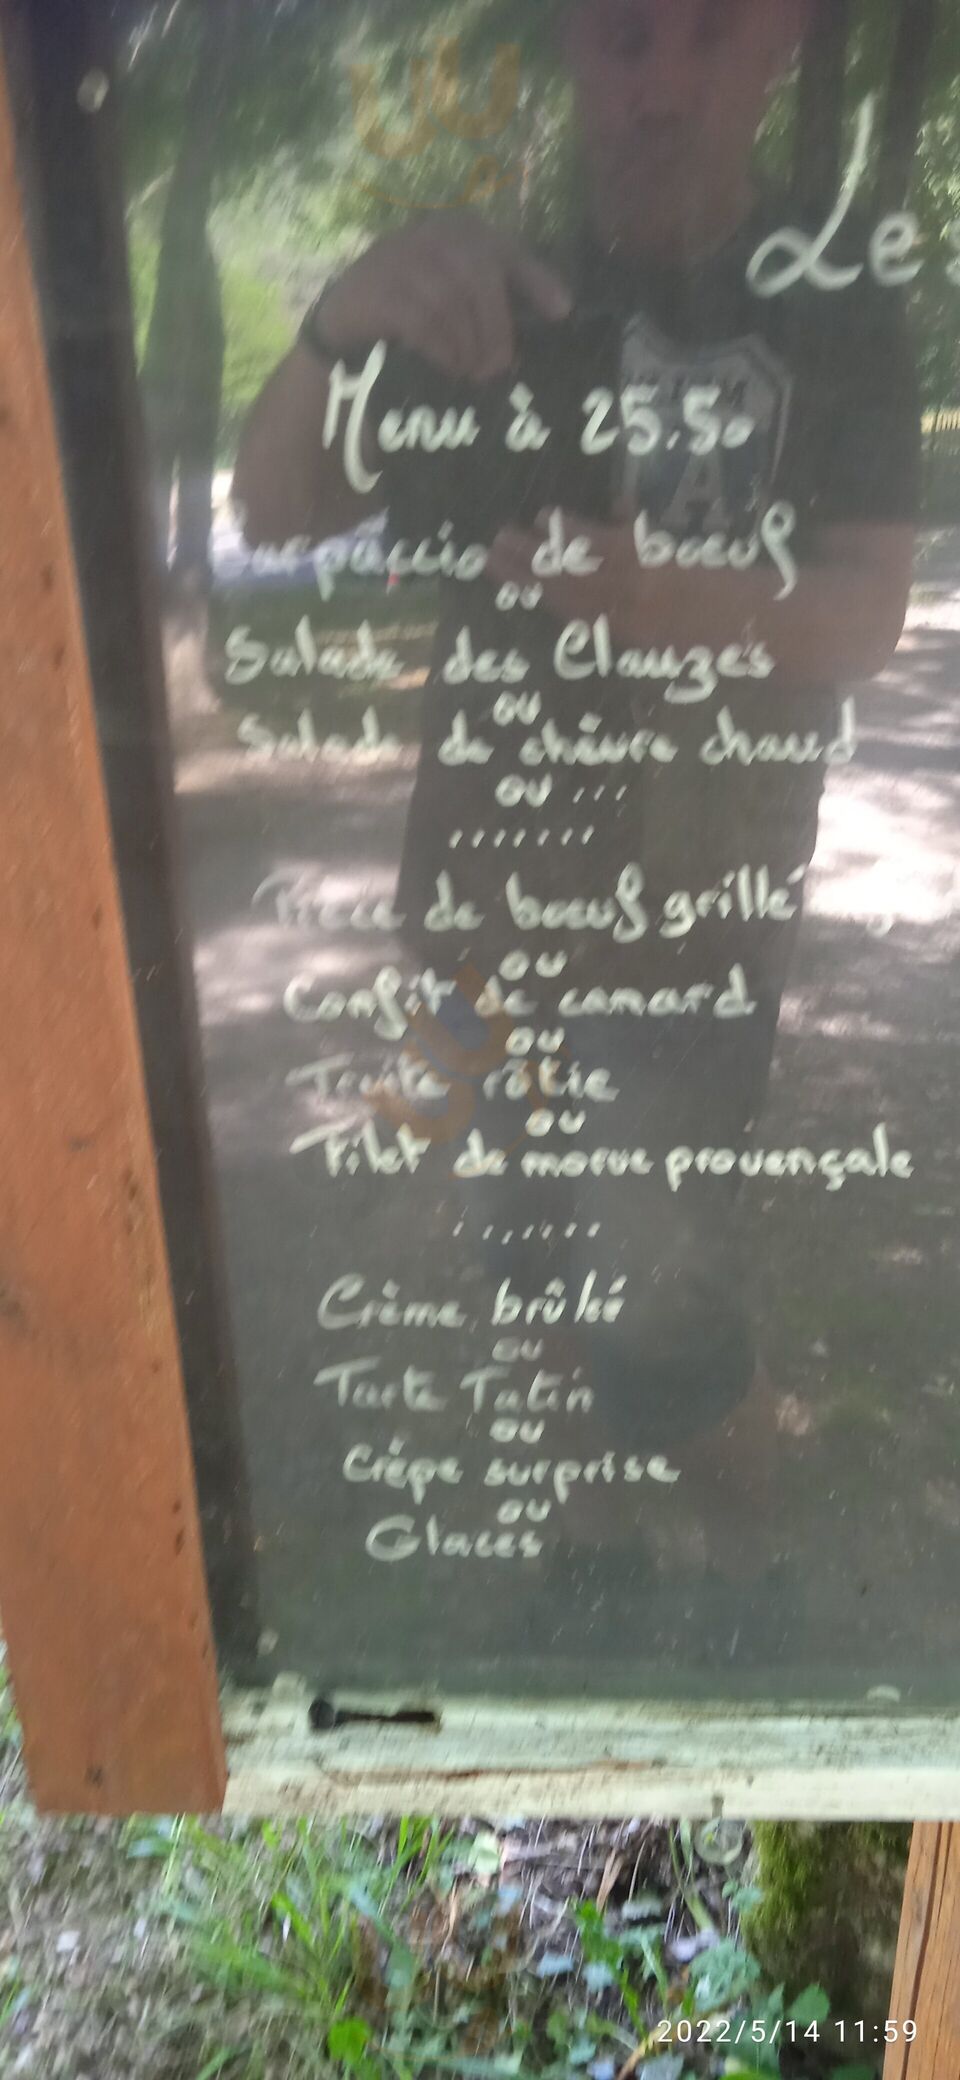 Les
Menu à 25.50
Carpaccio de boeuf
ou
Salade des Clauzes
ou
Salade de chèvre chaud
ou ...
.......
Pièce de boeuf grillé
ou
Confit de canard
ou
Truite rôtie
ou
Filet de morue provençale
.......
Crème brûlé
ou
Tarte Tatin
ou
Crêpe surprise
ou
Glaces
A
2022/5/14 11:59